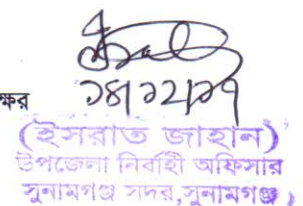 ক্ষর ১৪/১২/১৭
(ইসরাত জাহান)
উপজেলা নির্বাহী অফিসার
সুনামগঞ্জ সদর,সুনামগঞ্জ।